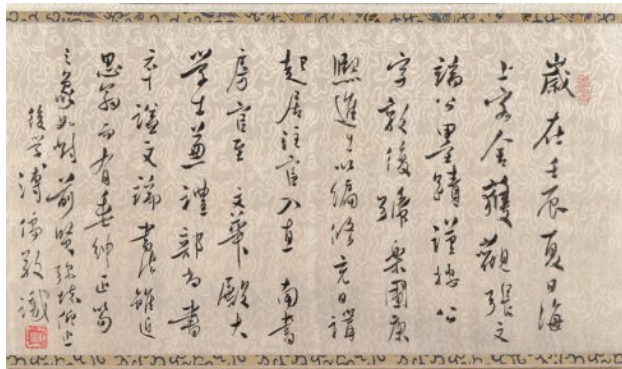 歲在壬辰夏日海
上客舍獲觀張文
端公墨蹟謹按公
字敦復號樂圃康
熙進士以編修充日講
起居注官入直南書
房官至文華殿大
學士兼禮部尚書
卒謚文端書法雖近
思翁而有垂紳正笏
之象如對前賢弥懷仰止
後學溥儒敬識